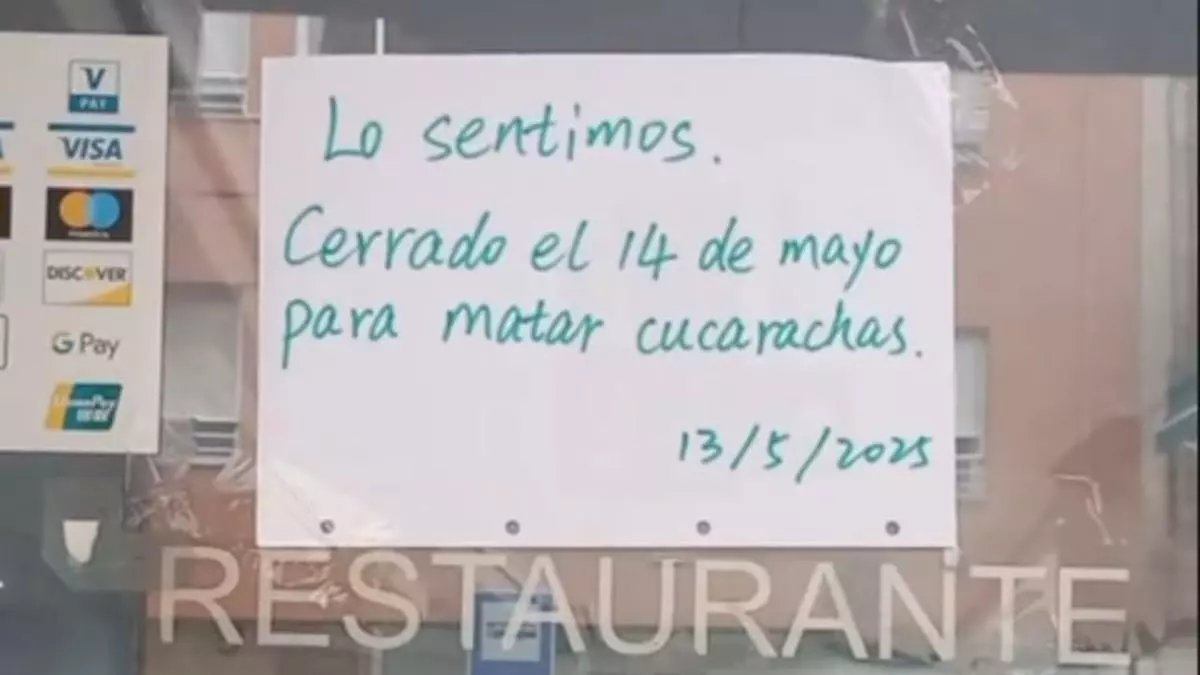 V
PAY
VISA
DISCOVER
G Pay
UnionPay
银联
Lo sentimos.
Cerrado el 14 de mayo
para matar cucarachas.
13/5/2025
RESTAURANTE